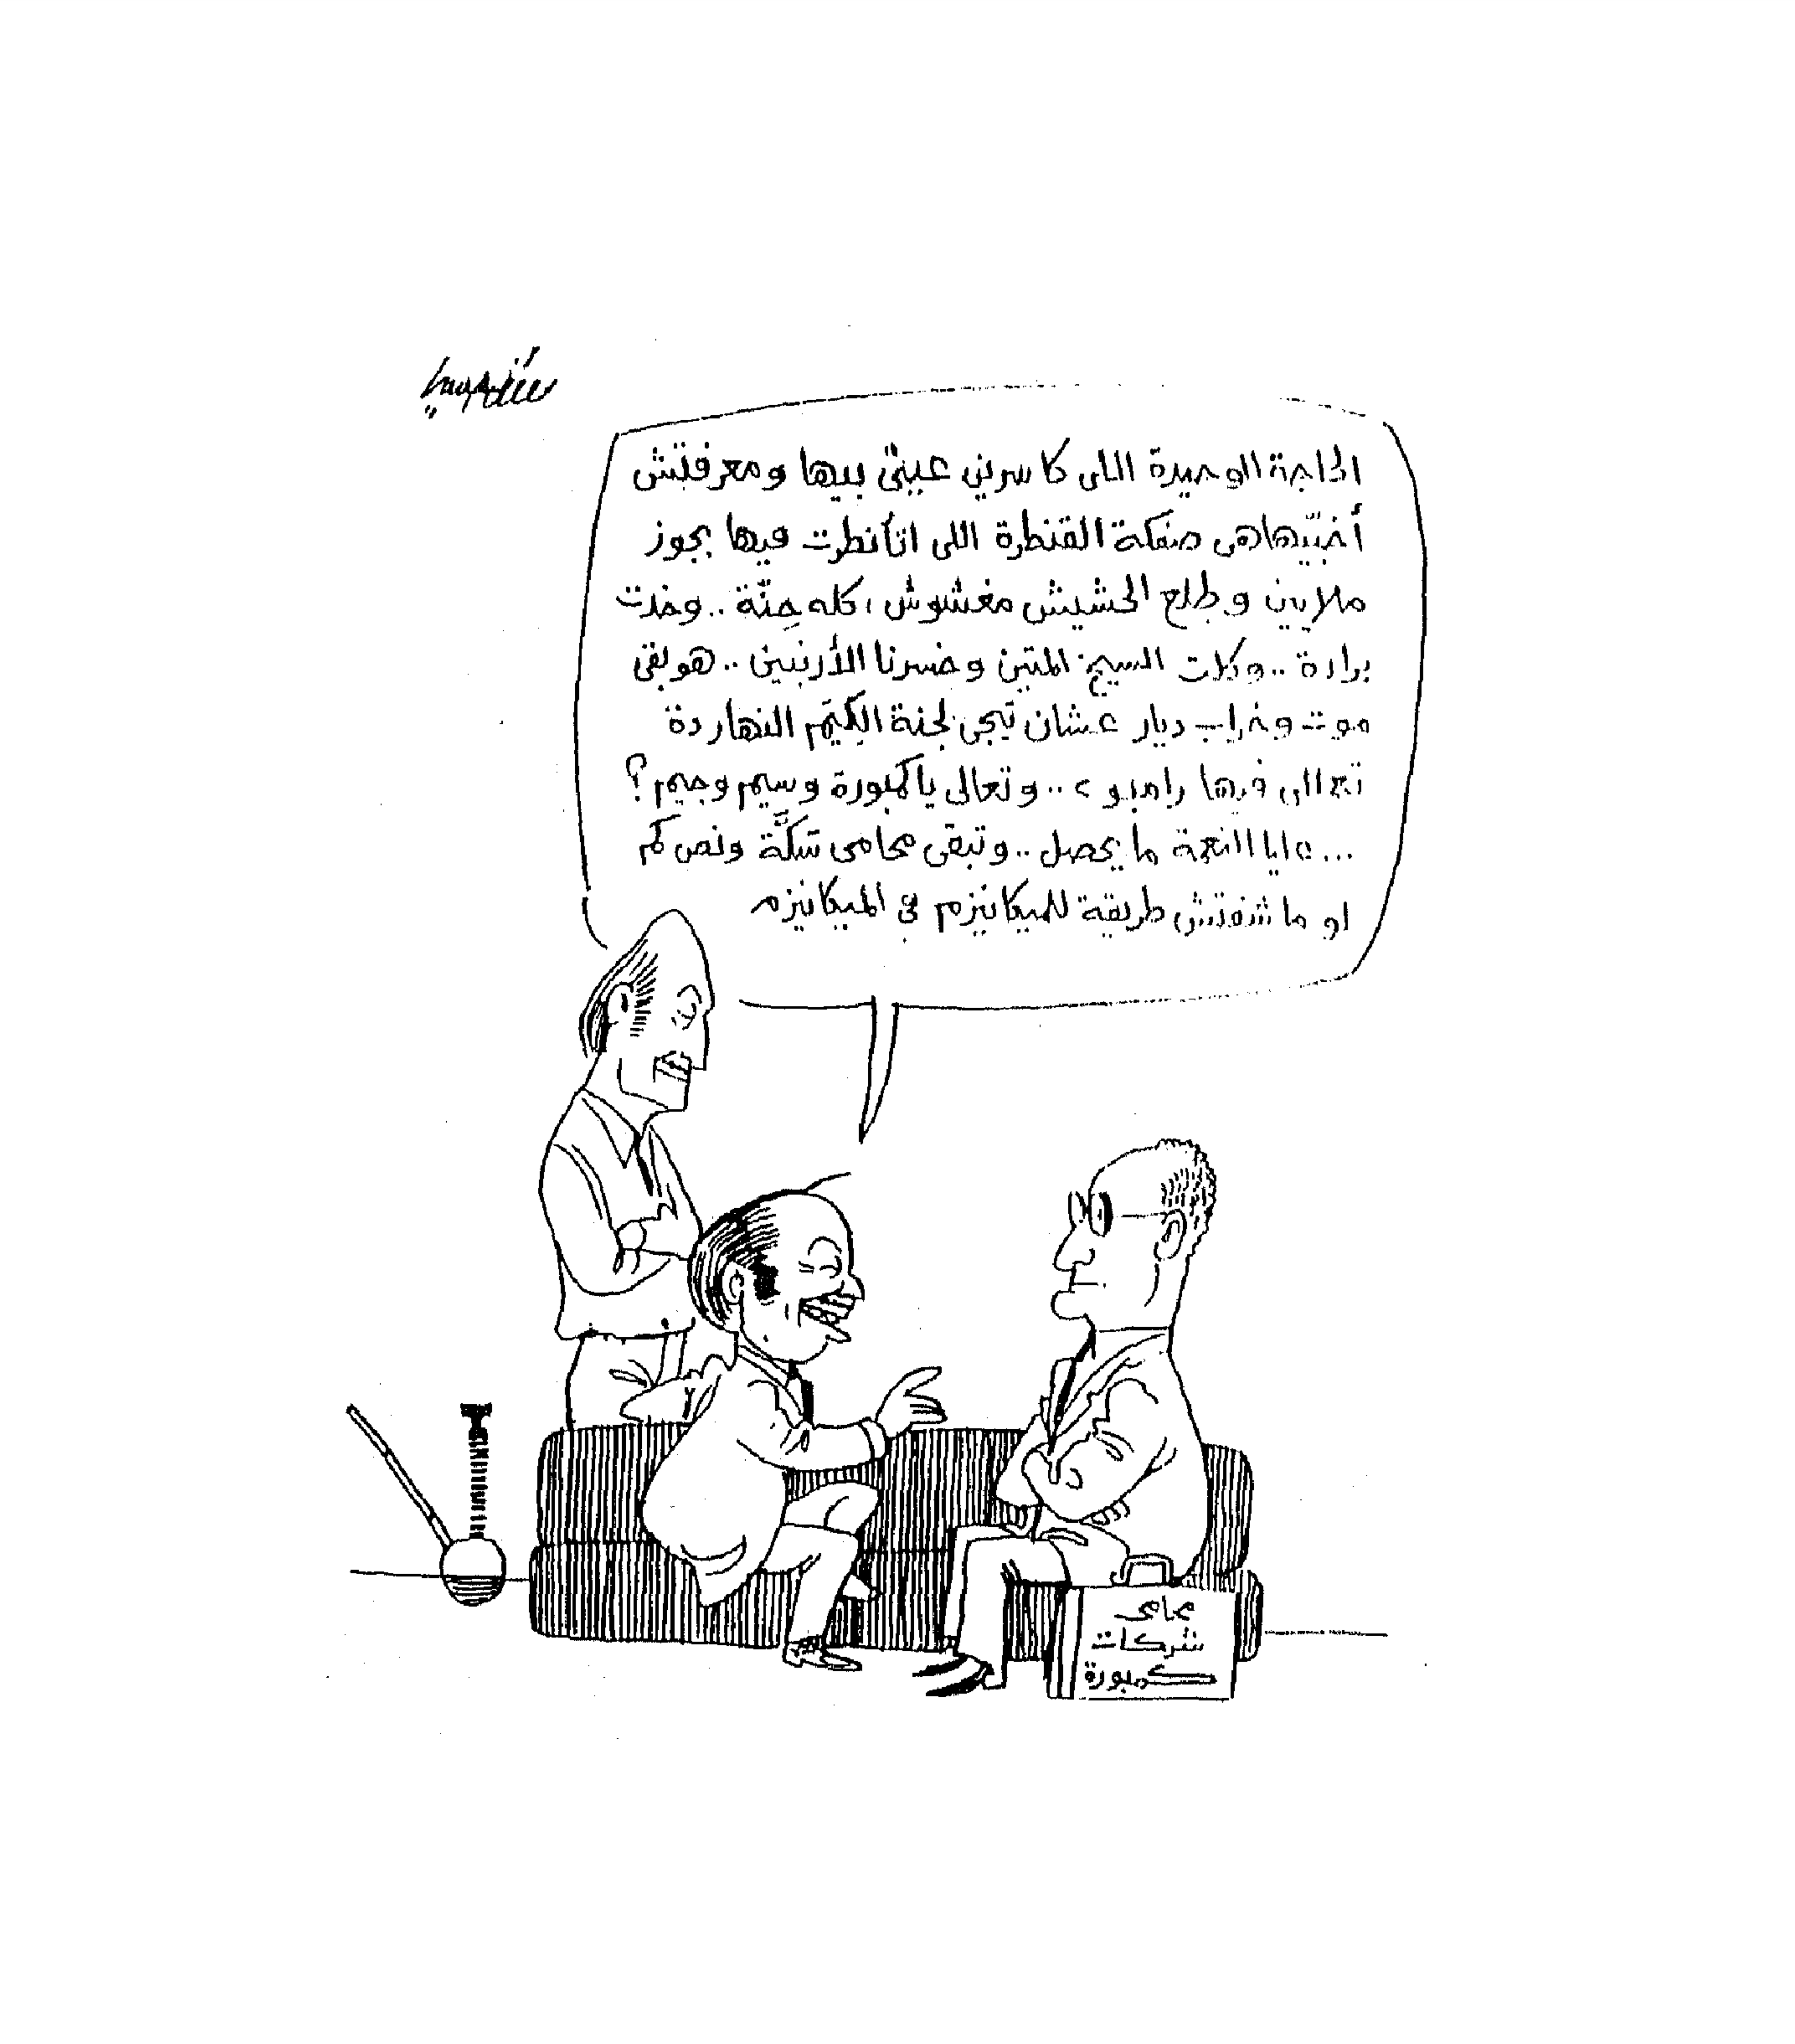 الحاجة الوحيدة اللى كاسرين عينى بيها ومعرفتش
أخبّيها هى صفكة القنطرة اللى اتأنطرت فيها بجوز
ملايين وطلع الحشيش مغشوش، كله حِنّة .. وخدت
برادة .. وكلت السيح المتين وخسرنا الأرنبين .. هو بقى
موت وخراب ديار عشان تيجى لجنة الكيتم النهاردة
تعالى فيها رامبو .. وتعالى ياكمبورة وسيم وجيم ؟
... النعمة ما يحصل .. وتبقى محامى شكَّة ونص كم
لو ما شفتش طريقة للميكانيزم فى الميكانيزم
محامى
شركات
كمبورة